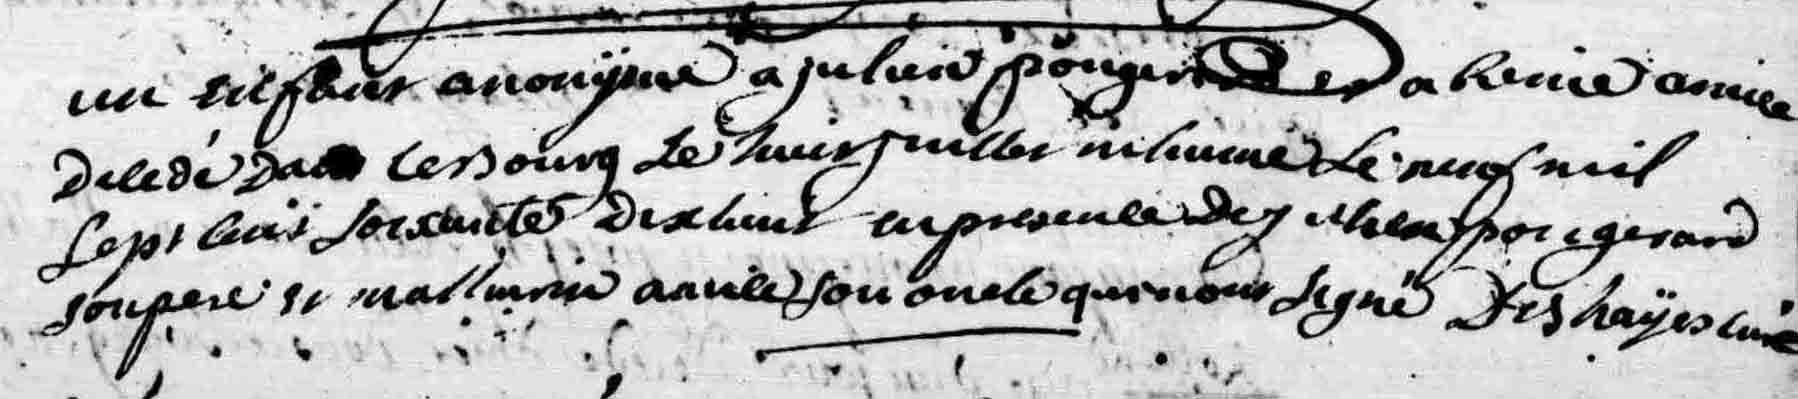 un enfant anonyme a julien pougerard et a Renée année
decedé dans le Bourg le huit juillet inhumé le neuf mil
sept cent soixante dix huit en presence de julien pougerard
son pere et mathurin année son oncle qui nont signé Deshayes curé